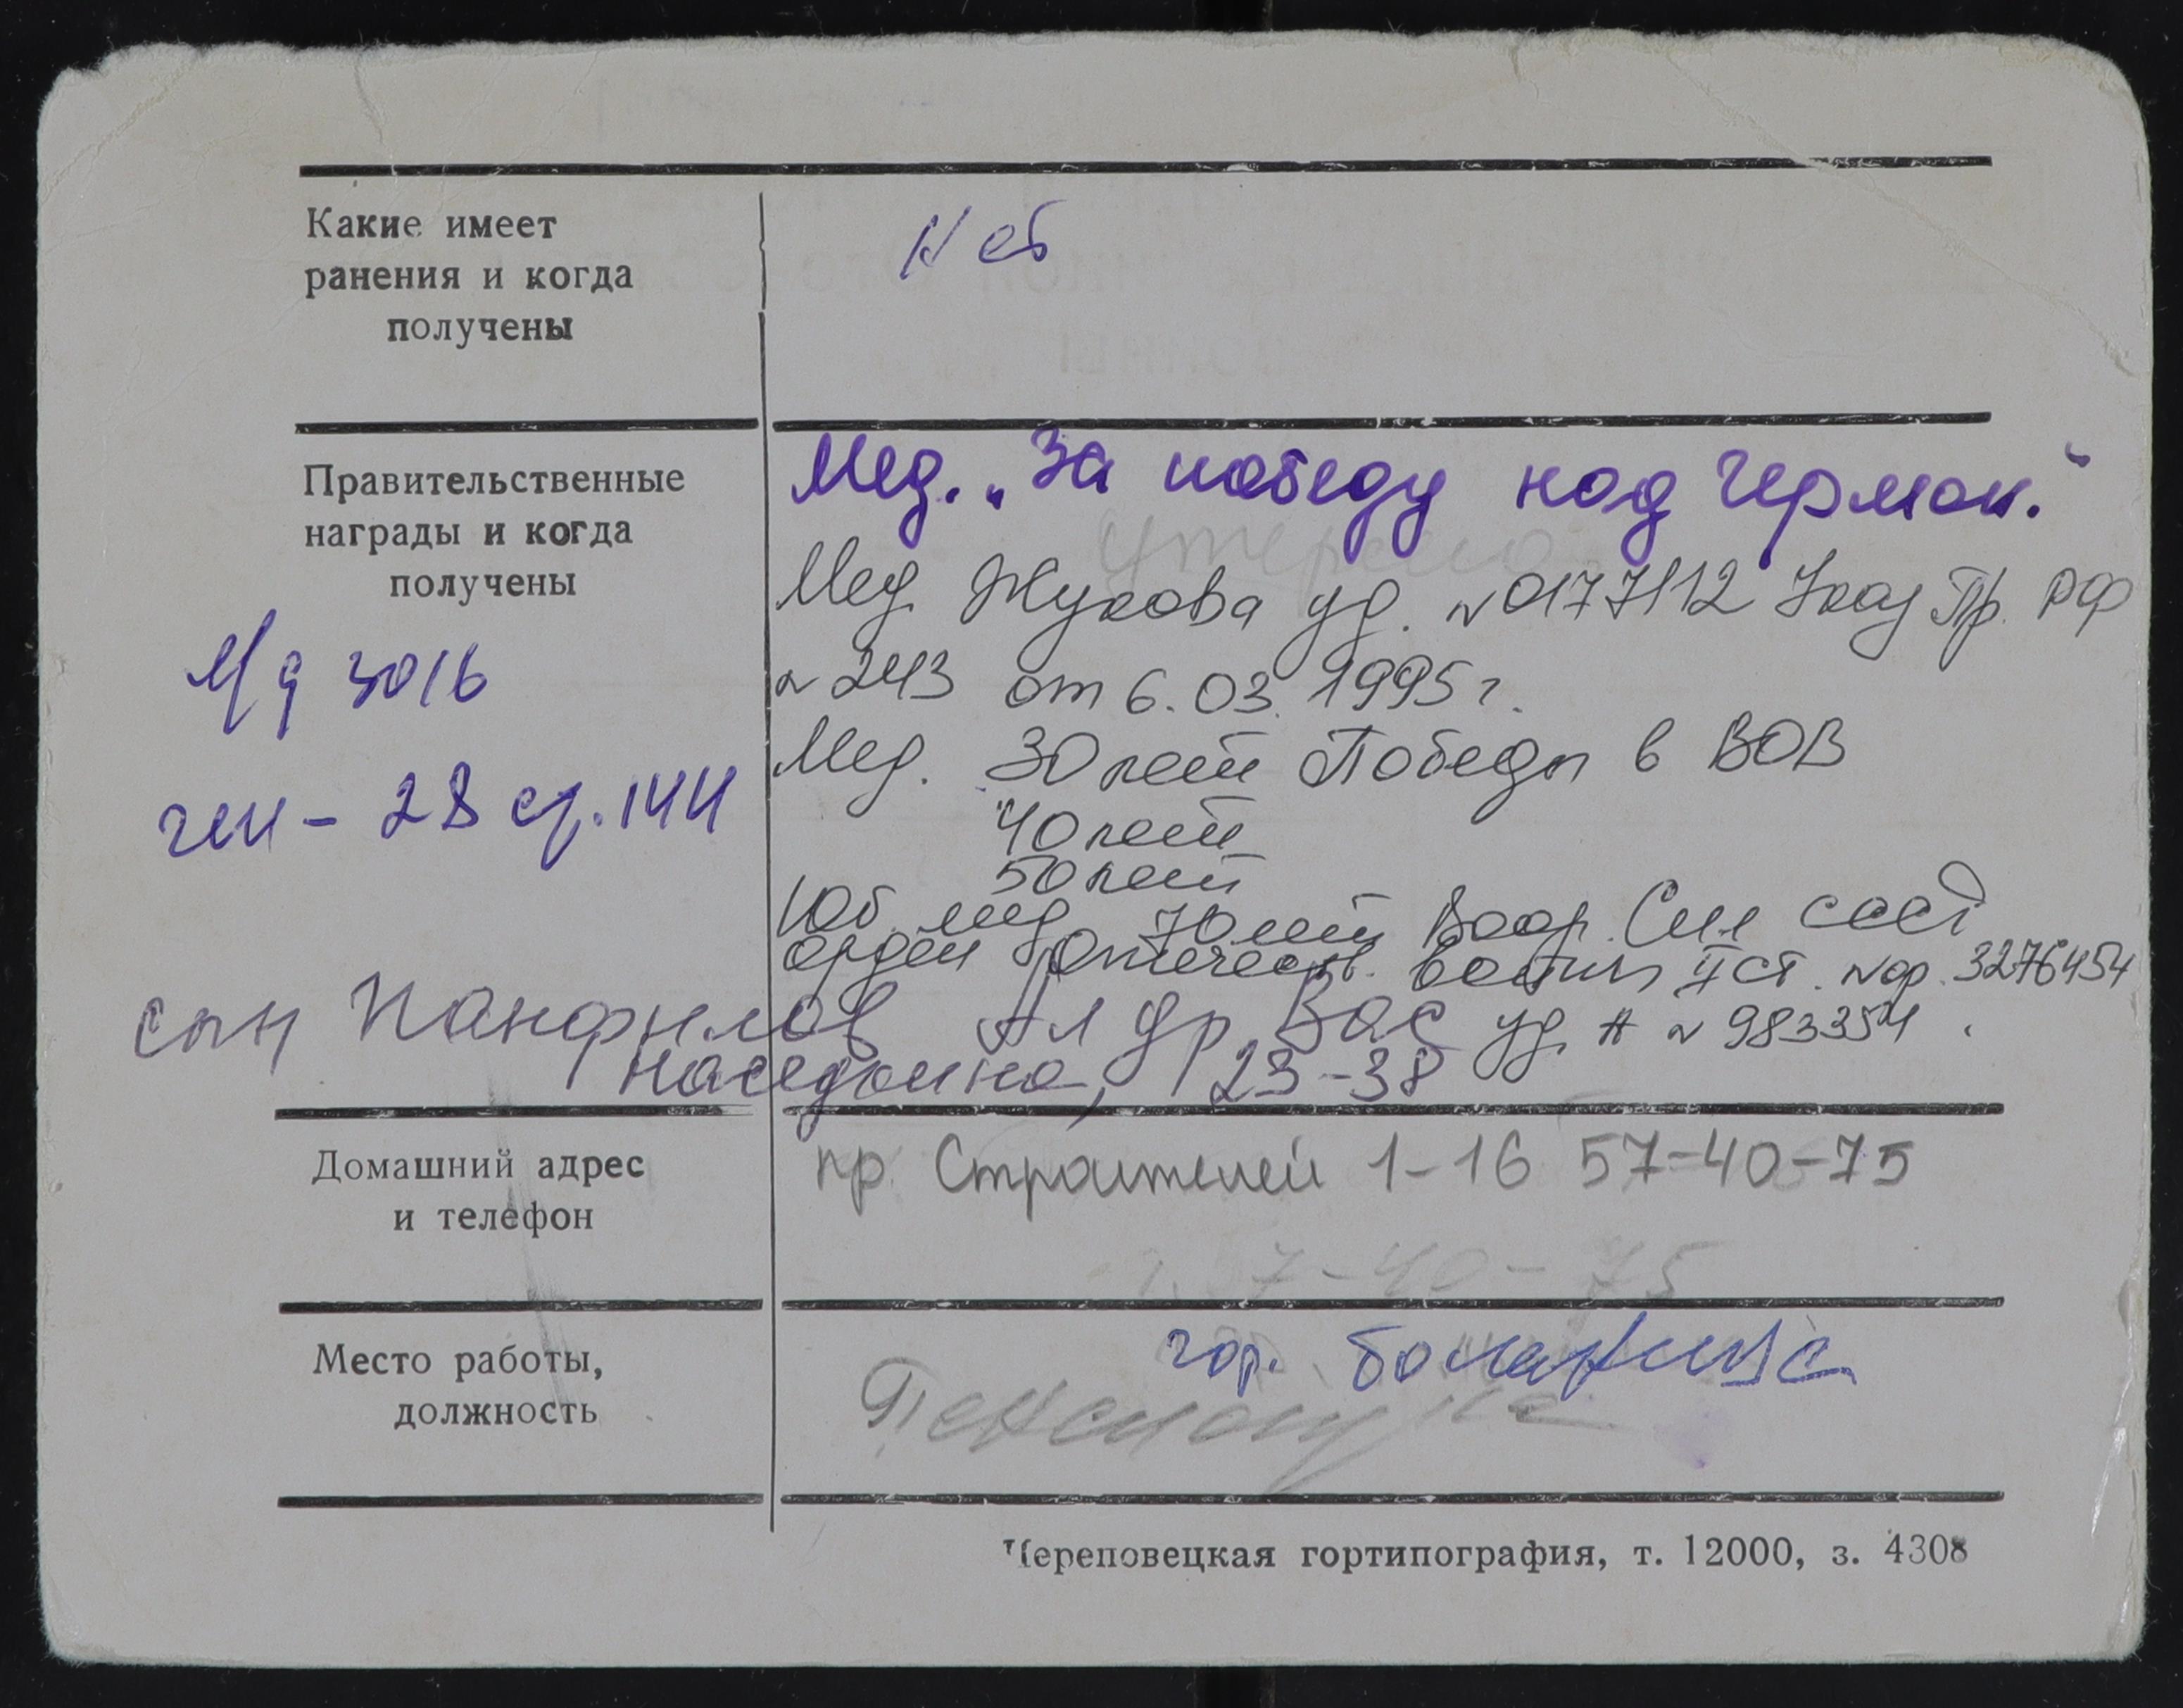 Какие имеет
ранения и когда
получены
Нет
Правительственные
награды и когда
получены
Мед. „За победу над Герман.“
утеряно
Мед Жукова уд. №0177112 Указ Пр. РФ
№243 от 6.03.1995г.
Мед. 30 лет Победы в ВОВ
40 лет
50 лет
Юб. мед 70 лет Воор. Сил СССР
орден Отечеств. войны II ст. №ор. 3276454
уд. № 983354
3016
28 ср. 144
сын Панфилов Ал др Вас
23-38
Домашний адрес
и телефон
пр. Строителей 1-16 57-40-75
7-40-75
Место работы,
должность
гор. больница
Пенсионерка
Череповецкая гортипография, т. 12000, з. 4308